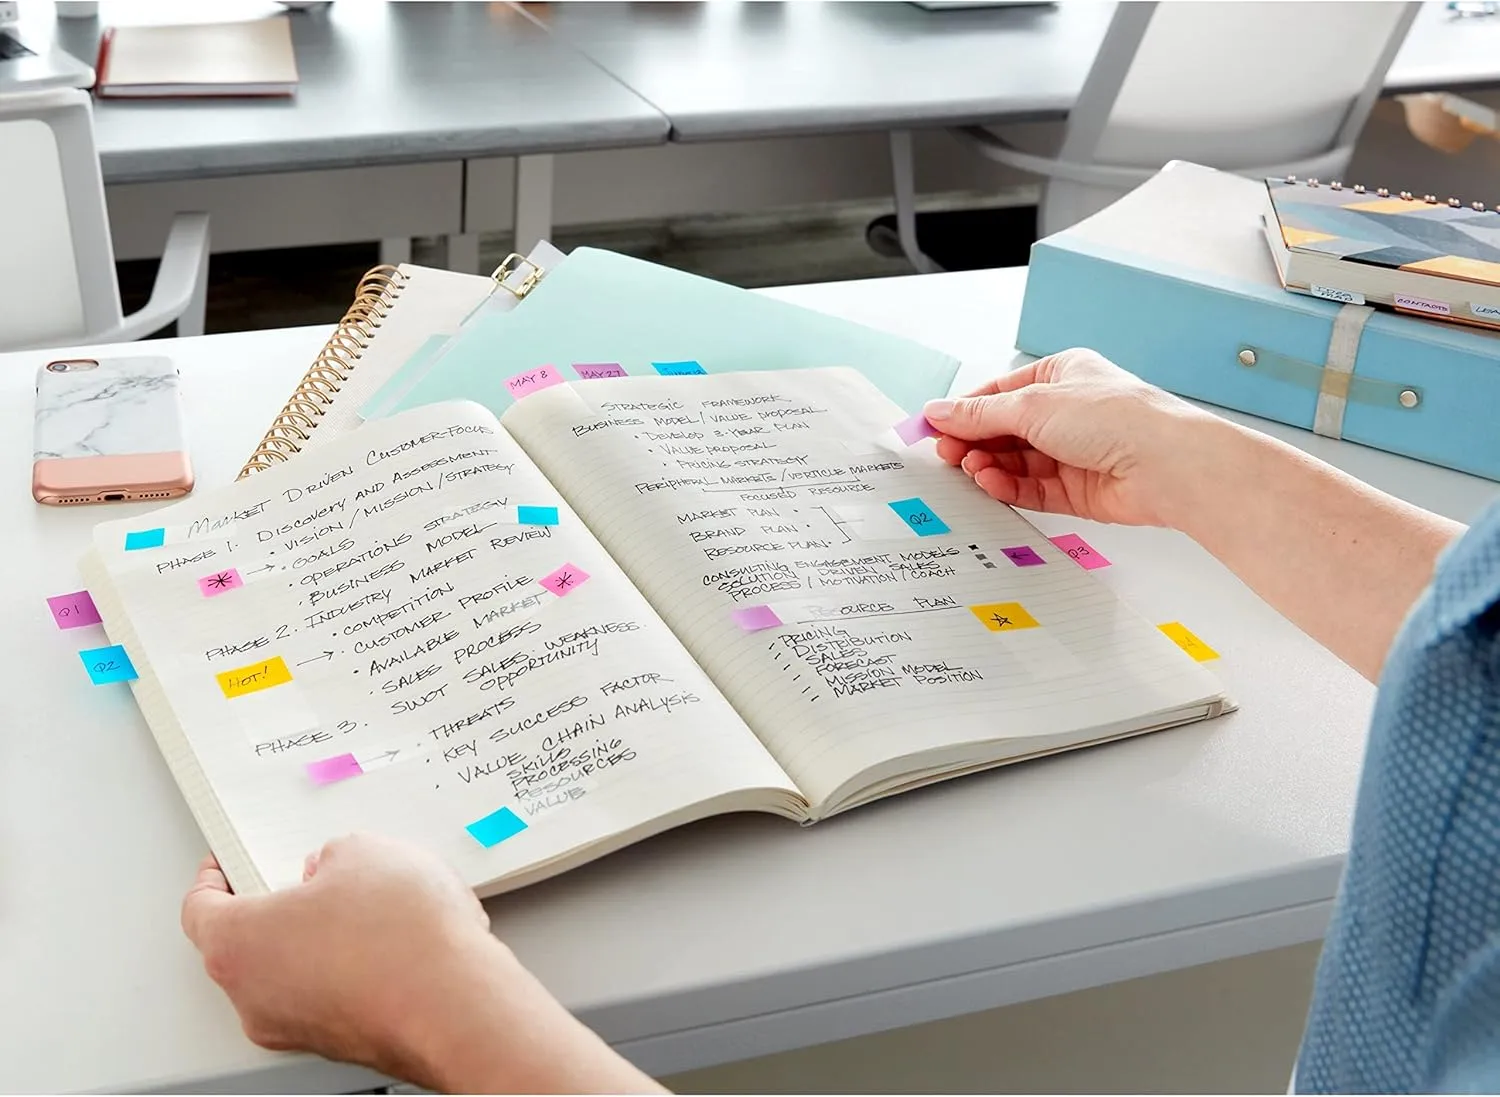 MAY 8
MAY 27
Q1
Q2
MARKET DRIVEN CUSTOMER-FOCUS
PHASE 1. DISCOVERY AND ASSESSMENT
• VISION/MISSION/STRATEGY
• GOALS
• OPERATIONS STRATEGY
• BUSINESS MODEL
PHASE 2. INDUSTRY MARKET REVIEW
• COMPETITION
• CUSTOMER PROFILE
HOT!
• AVAILABLE MARKET
• SALES PROCESS
• SWOT SALES: WEAKNESS.
OPPORTUNITY
PHASE 3.
• THREATS
• KEY SUCCESS FACTOR
• VALUE CHAIN ANALYSIS
SKILLS
PROCESSING
RESOURCES
VALUE
STRATEGIC FRAMEWORK
BUSINESS MODEL/VALUE PROPOSAL
• DEVELOP 3-YEAR PLAN
• VALUE PROPOSAL
• PRICING STRATEGY
PERIPHERAL MARKETS/VERTICLE MARKETS
FOCUSED RESOURCE
MARKET PLAN •
BRAND PLAN •
RESOURCE PLAN •
Q2
CONSULTING ENGAGEMENT MODELS
SOLUTION DRIVEN SALES
PROCESS / MOTIVATION / COACH
Q3
RESOURCE PLAN
- PRICING
- DISTRIBUTION
- SALES
- FORECAST
- MISSION MODEL
- MARKET POSITION
IDEA
CONTACTS